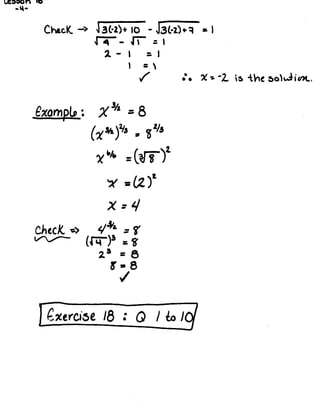 Lesson 18
-4-
Check → √3(-2)+10 - √3(-2)+7 = 1
√4 - √1 = 1
2 - 1 = 1
1 = 1
✓ ∴ x = -2 is the solution.
Example: x^3/2 = 8
(x^3/2)^2/3 = 8^2/3
x^6/6 = (∛8)^2
x = (2)^2
x = 4
Check ⇒ 4^3/2 = 8
(√4)^3 = 8
2^3 = 8
8 = 8
✓
Exercise 18 : Q 1 to 10